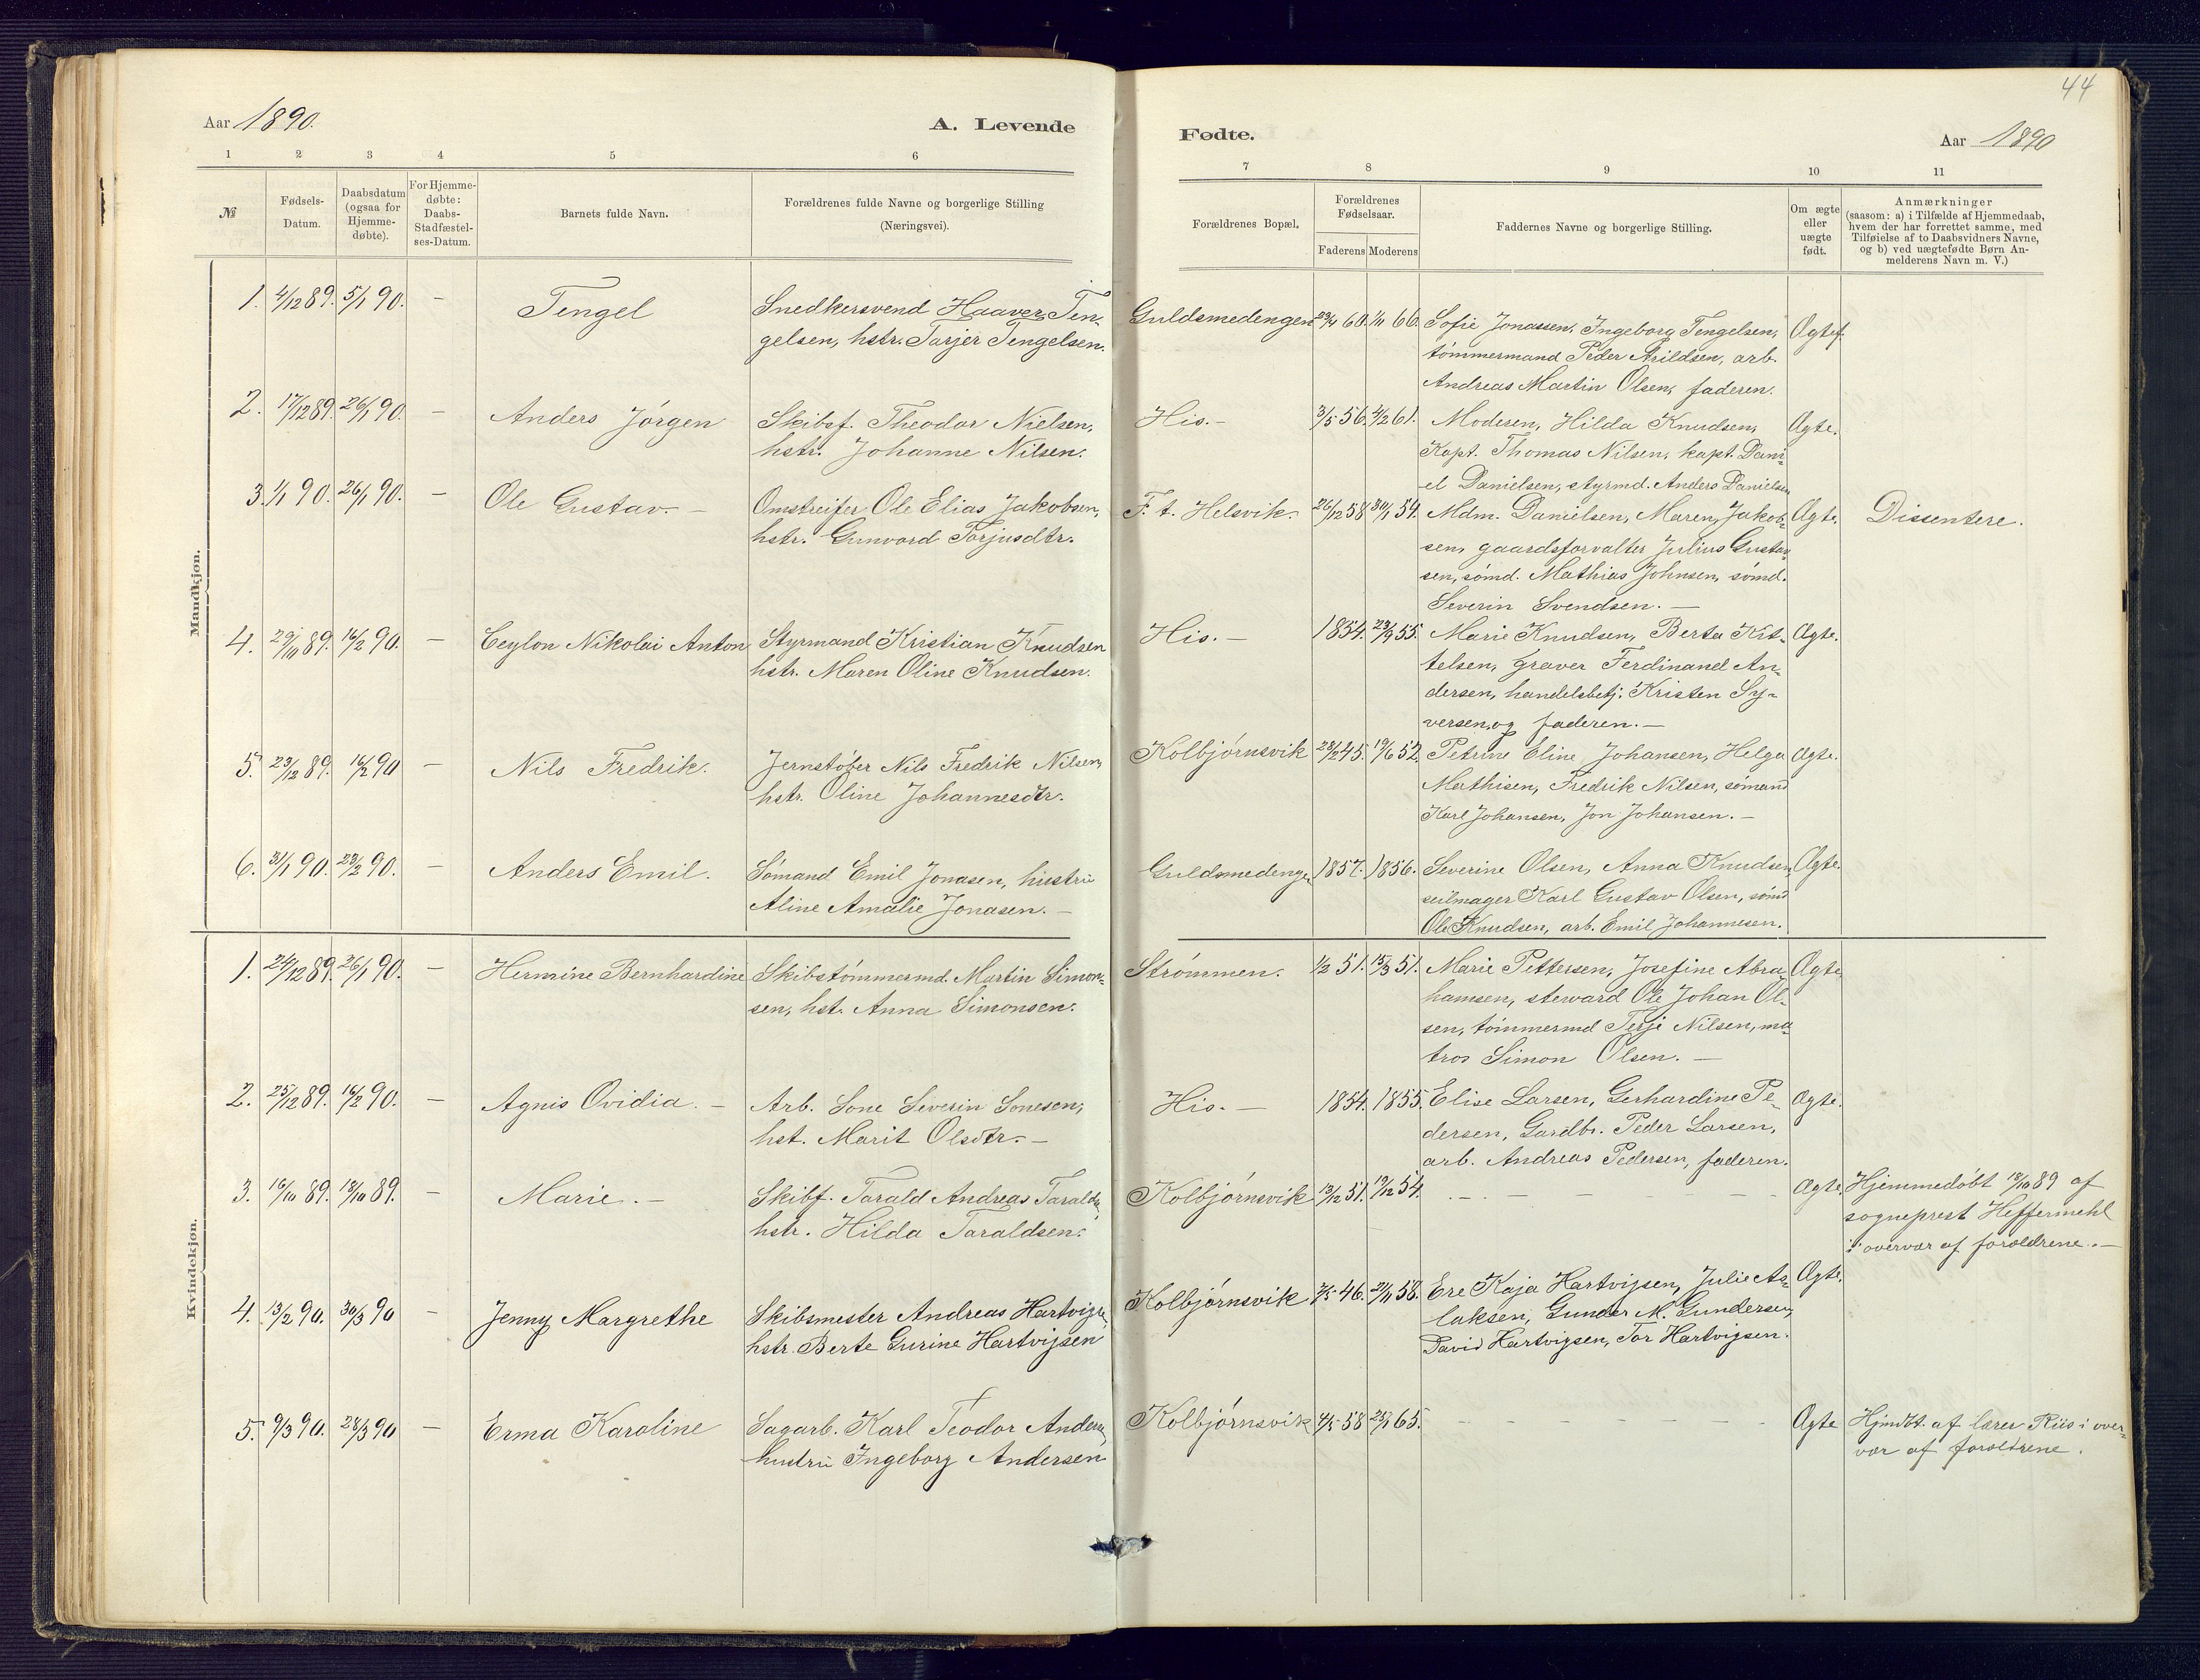 44
Aar 1890.
A. Levende
Fødte.
Aar 1890
1 2 3 4 5 6
7 8 9 10 11
№
Fødsels-
Datum.
Daabsdatum
(ogsaa for
Hjemme-
døbte).
For Hjemme-
døbte:
Daabs-
Stadfæstel-
ses-Datum.
Barnets fulde Navn.
Forældrenes fulde Navne og borgerlige Stilling
(Næringsvei).
Forældrenes Bopæl.
Forældrenes
Fødselsaar.
Faderens Moderens
Faddernes Navne og borgerlige Stilling.
Om ægte
eller
uægte
født.
Anmærkninger
(saasom: a) i Tilfælde af Hjemmedaab,
hvem der har forrettet samme, med
Tilføielse af to Daabsvidners Navne,
og b) ved uægtefødte Børn An-
melderens Navn m. V.)
Mandkjøn.
1. 4/12 89. 5/1 90. — Tengel
Snedkersvend Haaver Ten-
gelsen, hstr. Tarjer Tengelsen.
Guldsmedengen 29/4 60. 1/11 60.
Sofie Jonassen, Ingeborg Tengelsen,
tømmermand Peder Arildsen, arb.
Andreas Martin Olsen, faderen.
Ægtef.
2. 17/12 89. 26/1 90. — Anders Jørgen
Skibsf. Theodor Nielsen,
hstr. Johanne Nilsen.
His. — 3/5 56. 4/2 61.
Moderen, Hilda Knudsen,
Kapt. Thomas Nilsen, kapt. Dani-
el Danielsen, styrmd. Anders Danielsen
Ægte.
3. 1/1 90. 26/1 90. — Ole Gustav. —
Omstreifer Ole Elias Jakobsen,
hstr. Gunvord Torjusdtr.
F. t. Helsvik. 26/12 58 30/1 54.
Mdm. Danielsen, Maren Jakob-
sen, gaardsforvalter Julius Gustav-
sen, sømd. Mathias Johnsen, sømd.
Severin Svendsen. —
Ægte. Dissentere.
4. 29/10 89. 16/2 90. — Ceylon Nikolai Anton
Styrmand Kristian Knudsen
hstr. Maren Oline Knudsen.
His. — 1854. 23/9 55.
Marie Knudsen, Berta Kit-
telsen, graver Ferdinand An-
dersen, handelsbetj. Kristen Sy-
versen, og faderen. —
Ægte.
5. 23/12 89. 16/2 90 — Nils Fredrik.
Jernstøber Nils Fredrik Nilsen,
hstr. Oline Johannesdtr.
Kolbjørnsvik 23/2 45. 19/6 52.
Petrine Eline Johansen, Helga
Mathisen, Fredrik Nilsen, sømand
Karl Johansen, Jon Johansen. —
Ægte.
6. 31/1 90. 23/2 90. — Anders Emil.
Sømand Emil Jonasen, hustru
Aline Amalie Jonasen. —
Guldsmedengen 1857. 1856.
Severine Olsen, Anna Knudsen,
seilmager Karl Gustav Olsen, sømd
Ole Knudsen, arb. Emil Johannesen.
Ægte.
Kvindekjøn.
1. 24/12 89. 26/1 90. — Hermine Bernhardine
Skibstømmermd. Martin Simon-
sen, hst. Anna Simonsen.
Strømmen. 1/2 51. 15/3 51.
Marie Pettersen, Josefine Abra-
hamsen, steward Ole Johan Ol-
sen, tømmermd Terje Nilsen, ma-
tros Simon Olsen. —
Ægte
2. 25/12 89. 16/2 90. — Agnis Ovidia. —
Arb. Sone Severin Sonesen,
hst. Marit Olsdtr. —
His. — 1854. 1855.
Elise Larsen, Gerhardine Pe-
dersen, Gardbr. Peder Larsen,
arb. Andreas Pedersen, faderen.
Ægte.
3. 16/10 89. 18/10 89. — Marie. —
Skibf. Tarald Andreas Taralds.,
hstr. Hilda Taraldsen.
Kolbjørnsvik 13/12 51. 19/12 54. — — — —
Ægte. Hjemmedøbt 18/10 89 af
sogneprest Heffermehl
i overvær af forældrene. —
4. 13/2 90. 30/3 90 — Jenny Margrethe
Skibsmester Andreas Hartvigs.,
hstr. Berte Gurine Hartvigsen
Kolbjørnsvik 46. 21/11 58.
Ere Kaja Hartvigsen, Julie As-
laksen, Gunder M. Gundersen,
David Hartvigsen, Tor Hartvigsen.
Ægte.
5. 9/3 90. 28/3 90 — Erma Karoline
Sagarb. Karl Teodor Anders.,
hustru Ingeborg Andersen
Kolbjørnsvik 4/5 58 25/1 65. — — — —
Ægte Hjmdbt. af lærer Riis i over-
vær af forældrene.